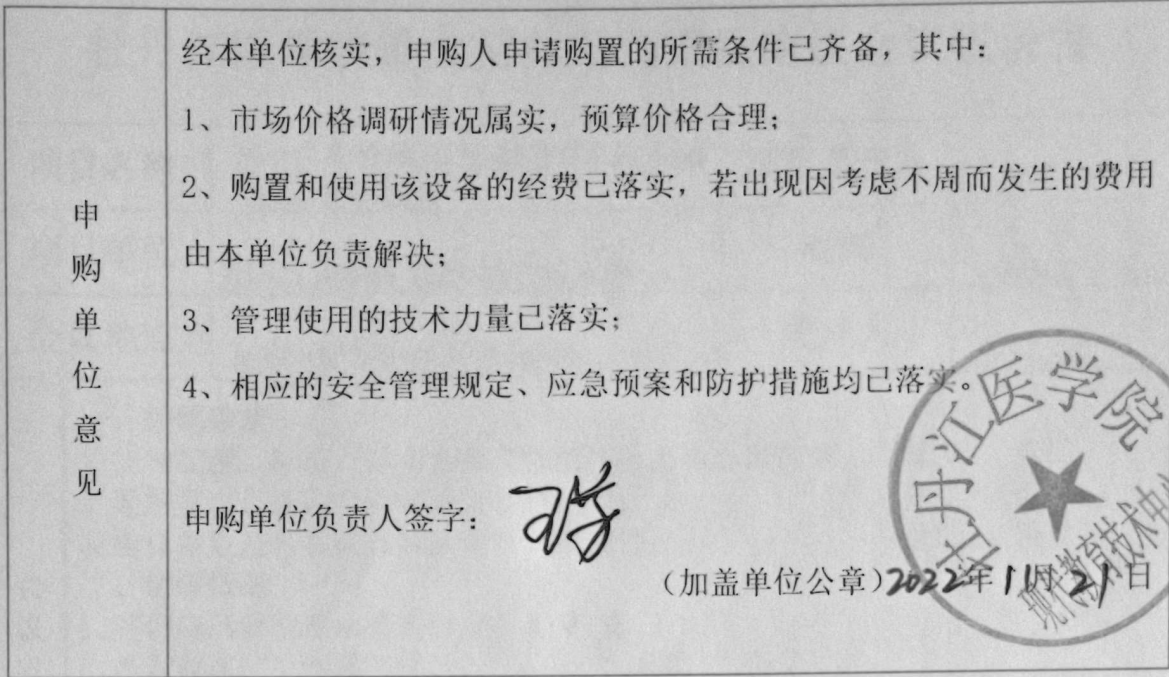 申购单位意见
经本单位核实，申购人申请购置的所需条件已齐备，其中：
1、市场价格调研情况属实，预算价格合理；
2、购置和使用该设备的经费已落实，若出现因考虑不周而发生的费用
由本单位负责解决；
3、管理使用的技术力量已落实；
4、相应的安全管理规定、应急预案和防护措施均已落实。
申购单位负责人签字：
（加盖单位公章）2022年11月21日
牡丹江医学院
现代教育技术中心